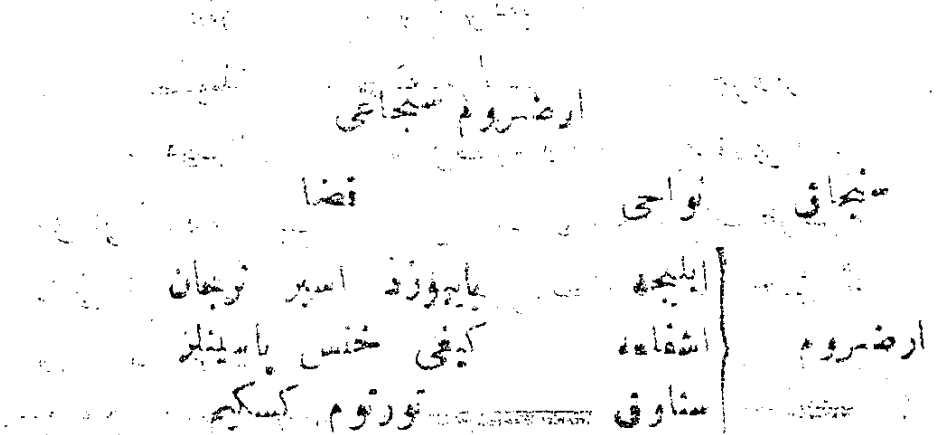 ارضروم سنجاغی
سنجاق نواحی قضا
ایلیجه بایبورد اسپر ترجان
ارضروم اشقلعه کیغی خنس پاسینلر
سناوق تورتوم کسکیم